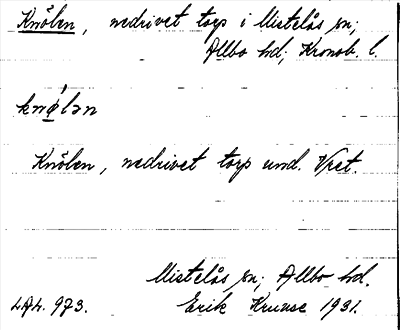 Knölen, nedrivet torp i Mistelås sn;
Allbo hd, Kronob. l.
knø̀lən
Knölen, nedrivet torp und. Vret.
Mistelås sn; Allbo hd.
LAL. 973. Erik Kruuse 1931.